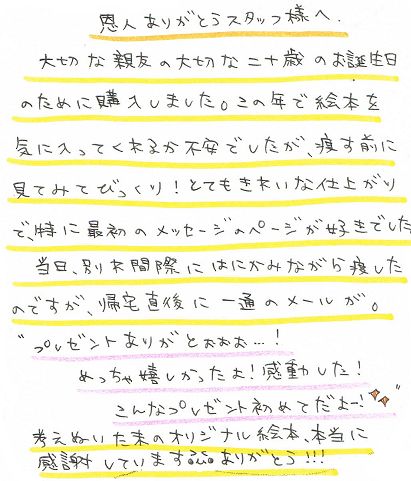 恩人ありがとうスタッフ様へ.
大切な親友の大切な二十歳のお誕生日
のために購入しました。この年で絵本を
気に入ってくれるか不安でしたが、渡す前に
見てみてびっくり！とてもきれいな仕上がり
で、特に最初のメッセージのページが好きでした
当日、別れ間際にはにかみながら渡した
のですが、帰宅直後に一通のメールが。
"プレゼントありがとおおお…！
めっちゃ嬉しかったよ！感動した！
こんなプレゼント初めてだよー！"
考えぬいた末のオリジナル絵本、本当に
感謝しています。ありがとう!!!